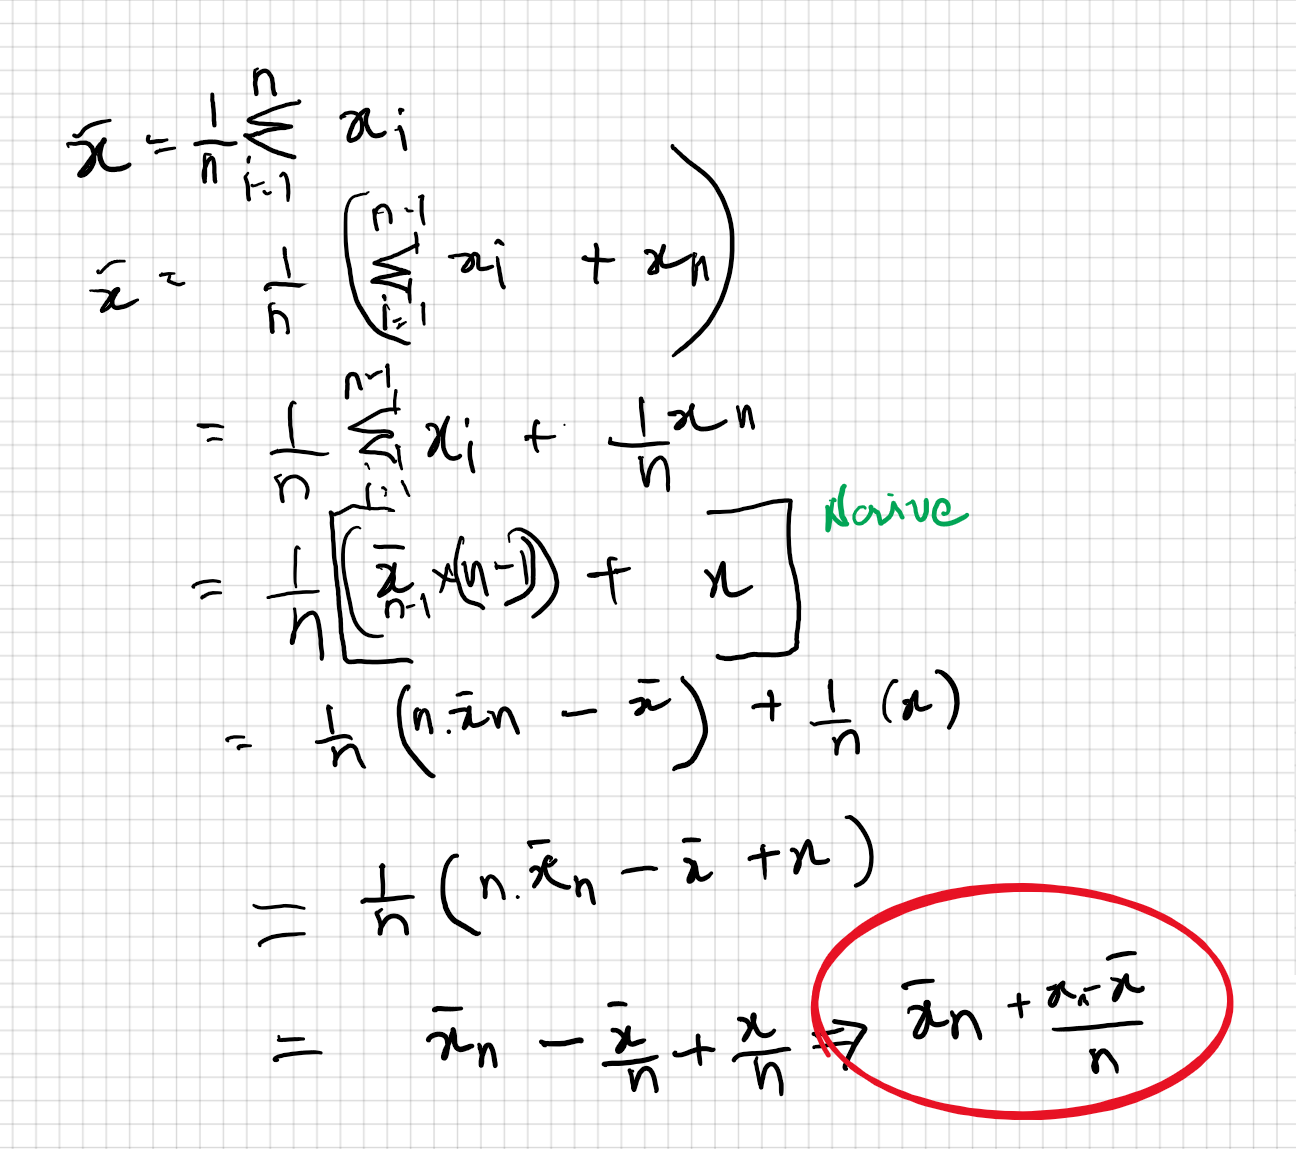 x̄ = 1/n Σ_{i=1}^{n} x_i
x̄ = 1/n ( Σ_{i=1}^{n-1} x_i + x_n )
= 1/n Σ_{i=1}^{n-1} x_i + 1/n x_n
Naive
= 1/n [ ( x̄_{n-1} × (n-1) ) + x ]
= 1/n ( n.x̄_n - x̄ ) + 1/n (x)
= 1/n ( n.x̄_n - x̄ + x )
= x̄_n - x̄/n + x/n ⇒ x̄_n + (x_n - x̄)/n